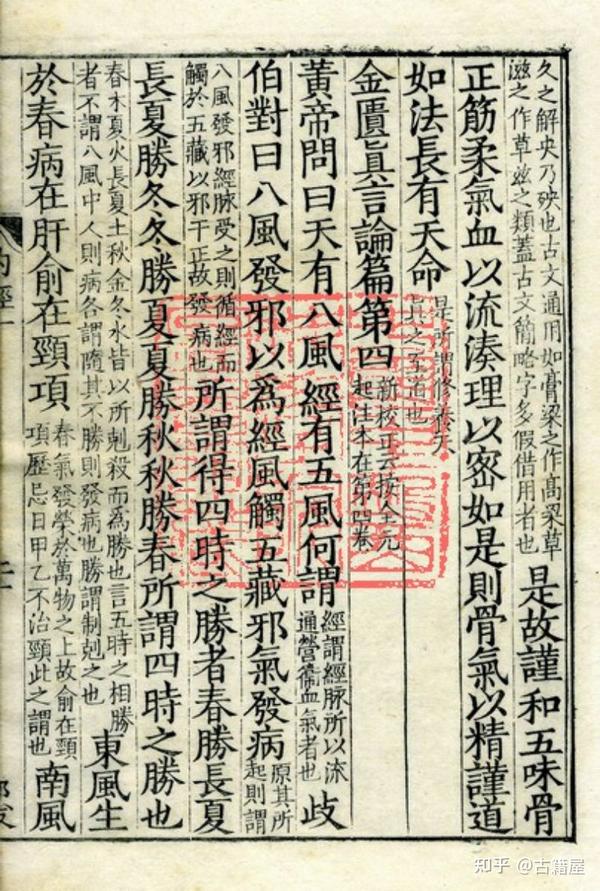 久之解央乃殃也古文通用如膏梁之作髙梁草滋之作草兹之類蓋古文簡略字多假借用者也是故謹和五味骨
正筋柔氣血以流湊理以密如是則骨氣以精謹道
如法長有天命是所謂修養天真之至道也
金匱眞言論篇第四新校正云按全元起注本在第四卷
黃帝問曰天有八風經有五風何謂經謂經脉所以流通營衛血氣者也歧
伯對曰八風發邪以爲經風觸五藏邪氣發病原其所起則謂
八風發邪經脉受之則循經而觸於五藏以邪干正故發病也所謂得四時之勝者春勝長夏
長夏勝冬冬勝夏夏勝秋秋勝春所謂四時之勝也
春木夏火長夏土秋金冬水皆以所剋殺而爲勝也言五時之相勝者不謂八風中人則病各謂隨其不勝則發病也勝謂制剋之也東風生
於春病在肝俞在頸項春氣發榮於萬物之上故俞在頸項歷忌日甲乙不治頸此之謂也南風
知乎 @古籍屋